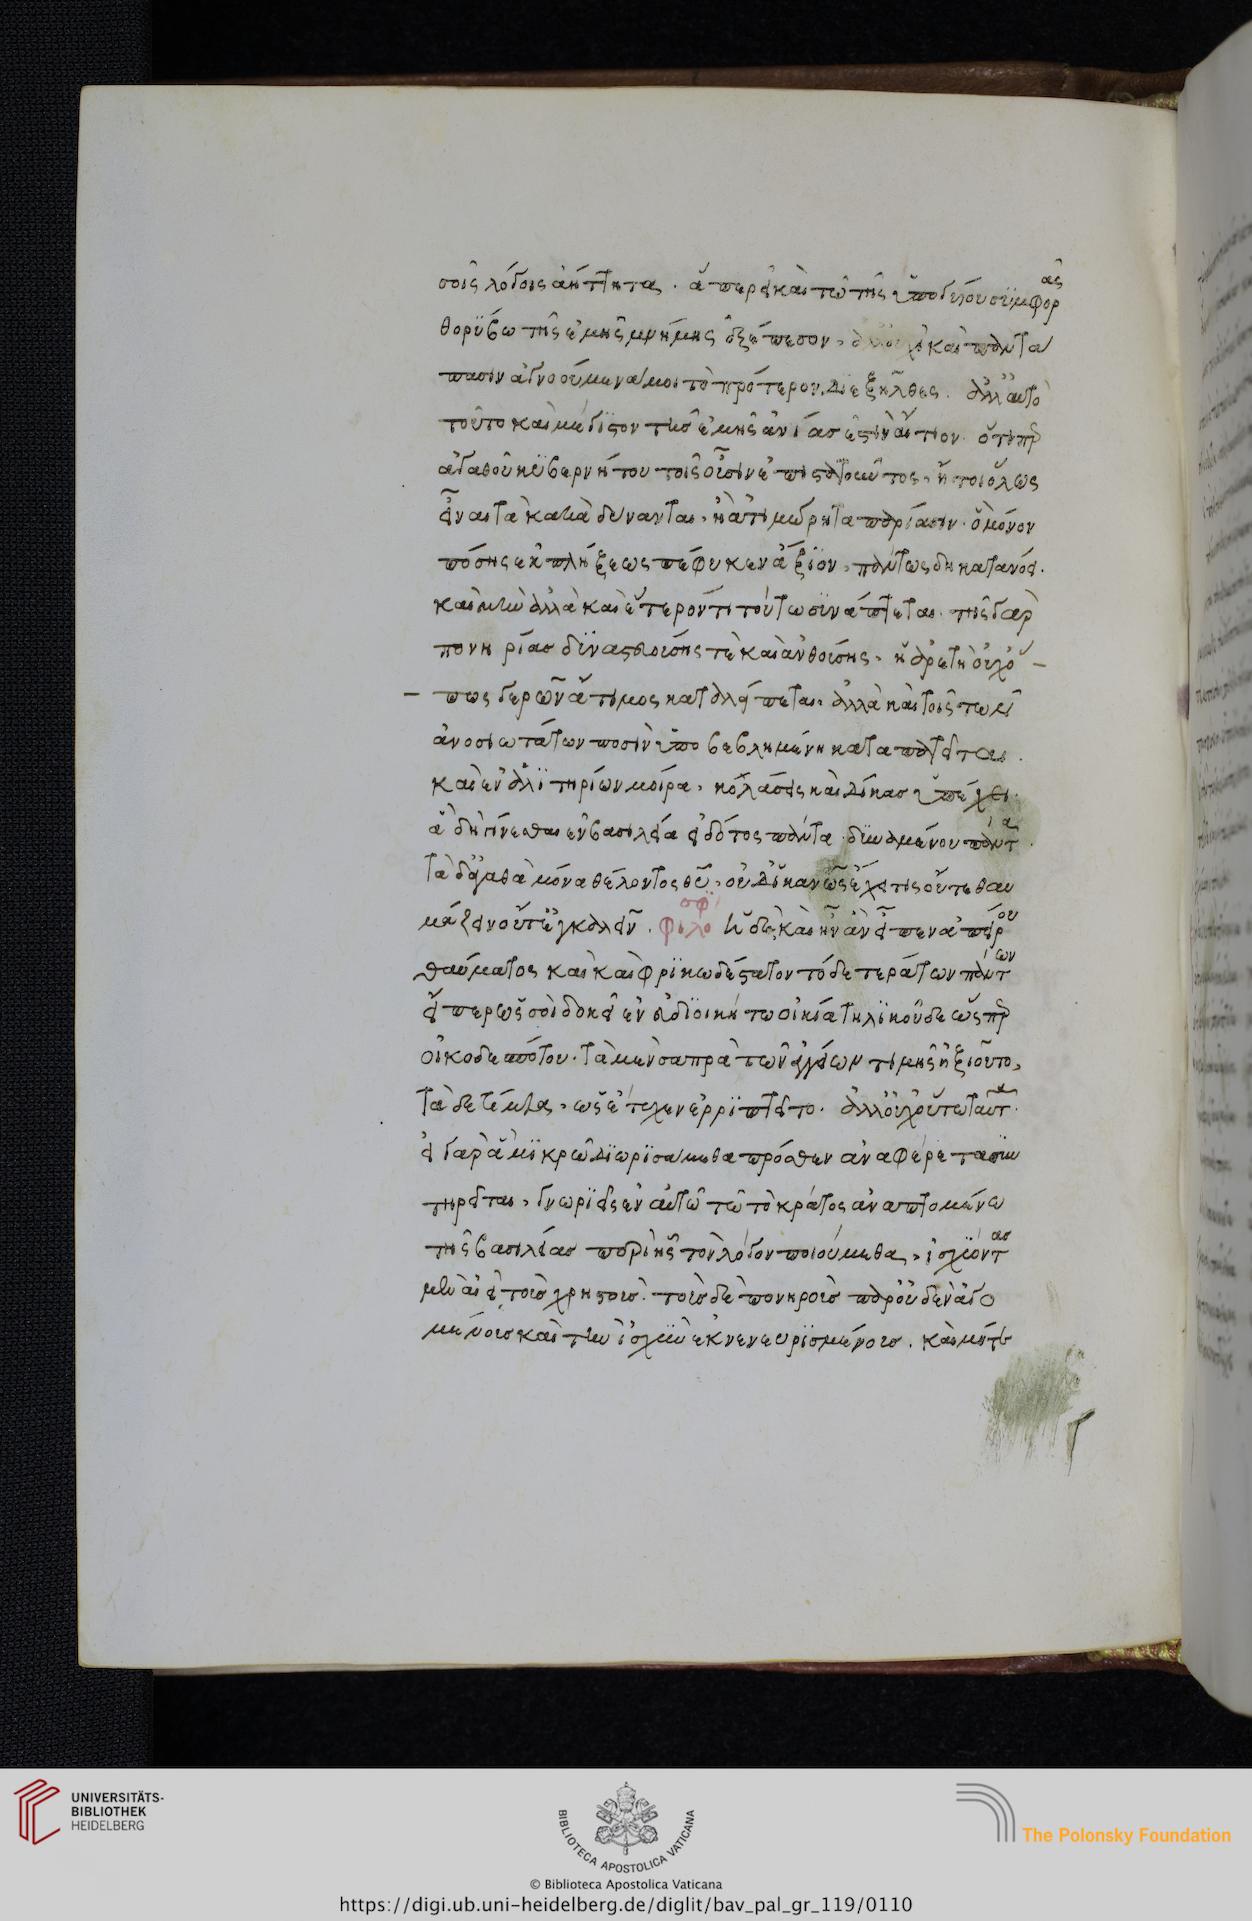 σοῖς λόγοις ἀήττητα. ἅπερ εἰ καὶ τῷ τῆς ὑπογυίου συμφορᾶς
θορύβῳ τῆς ἐμῆς μνήμης ἐξέπεσον, ἀλλ' οὐχὶ καὶ παντά
πασιν ἀγνοούμενά μοι τὸ πρότερον διεξῆλθες. ἀλλ' αὐτὸ
τοῦτο καὶ μέγιστον τῆς ἐμῆς ἀνίας ἐστὶν αἴτιον. ὅτι παρ
ἀγαθοῦ κυβερνήτου τοῖς οὖσιν ἐπιστατοῦντος, ἤτοι ὅλως
εἶναι τὰ κακὰ δύνανται, ἢ ἀτιμώρητα παρίασιν. ὃ μόνον
πόσης ἐκπλήξεως πέφυκεν ἄξιον, πάντως δὴ κατανοεῖς.
καὶ μὴν ἀλλὰ καὶ ἕτερόν τι τούτῳ συνάπτεται. τῆς γὰρ
πονηρίας δυναστευούσης τε καὶ ἀνθούσης, ἡ ἀρετὴ οὐχ ὅ-
πως γερῶν ἄτιμος καταλείπεται, ἀλλὰ καὶ τοῖς τῶν
ἀνοσιωτάτων ποσὶν ὑποβεβλημένη καταπατεῖται.
καὶ ἐν ἀλιτηρίων μοίρᾳ, κολάσεις καὶ δίκας ὑπέχει.
ἃ δὴ γίνεσθαι ἐν βασιλείᾳ εἰδότος πάντα. δυναμένου πάντα.
τὰ δ' ἀγαθὰ μόνα θέλοντος θεοῦ, οὐδ' ἱκανῶς ἔχει τις οὔτε θαυ
μάζειν οὔτ' ἐγκαλεῖν. Φιλοσοφί Ἡ δὲ, καὶ ἦν ἂν εἶπεν ἀπείρου
θαύματος καὶ καὶ φρικωδέστατον τόδε τεράτων πάντων
εἴπερ ὡς σοὶ δοκεῖ ἐν εὐδιοικήτῳ οἰκίᾳ τηλικοῦδε ὥσπερ
οἰκοδεσπότου. τὰ μὲν σαπρὰ τῶν ἀγγείων τιμῆς ἠξιοῦτο,
τὰ δὲ τίμια, ὡς ἔτυχεν ἐρρίπτετο. ἀλλ' οὐχ οὕτω ταῦτα.
εἰ γὰρ ἃ μικρῷ διωρισάμεθα πρόσθεν συν
τηρεῖται, γνωριεῖς ἐν αὐτῷ τῷ τὸ κράτος ἀναπτομένῳ
τῆς βασιλείας περὶ ἧς τὸν λόγον ποιούμεθα, ἰσχύοντας
μὲν ἀεὶ τοὺς χρηστούς. τοὺς δὲ πονηροὺς παρ' οὐδὲν ἀγο
μένους καὶ τὴν ἰσχὺν ἐκνενευρισμένους. καὶ μήτε
UNIVERSITÄTS-
BIBLIOTHEK
HEIDELBERG
BIBLIOTECA APOSTOLICA VATICANA
The Polonsky Foundation
© Biblioteca Apostolica Vaticana
https://digi.ub.uni-heidelberg.de/diglit/bav_pal_gr_119/0110